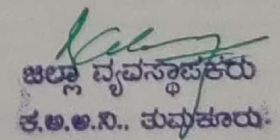 ಜಿಲ್ಲಾ ವ್ಯವಸ್ಥಾಪಕರು
ಕ.ಅ.ಅ.ನಿ., ತುಮಕೂರು.